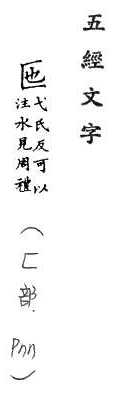 五經文字
匜弋氏反可以
注水見周禮
（匚部．Pnn）